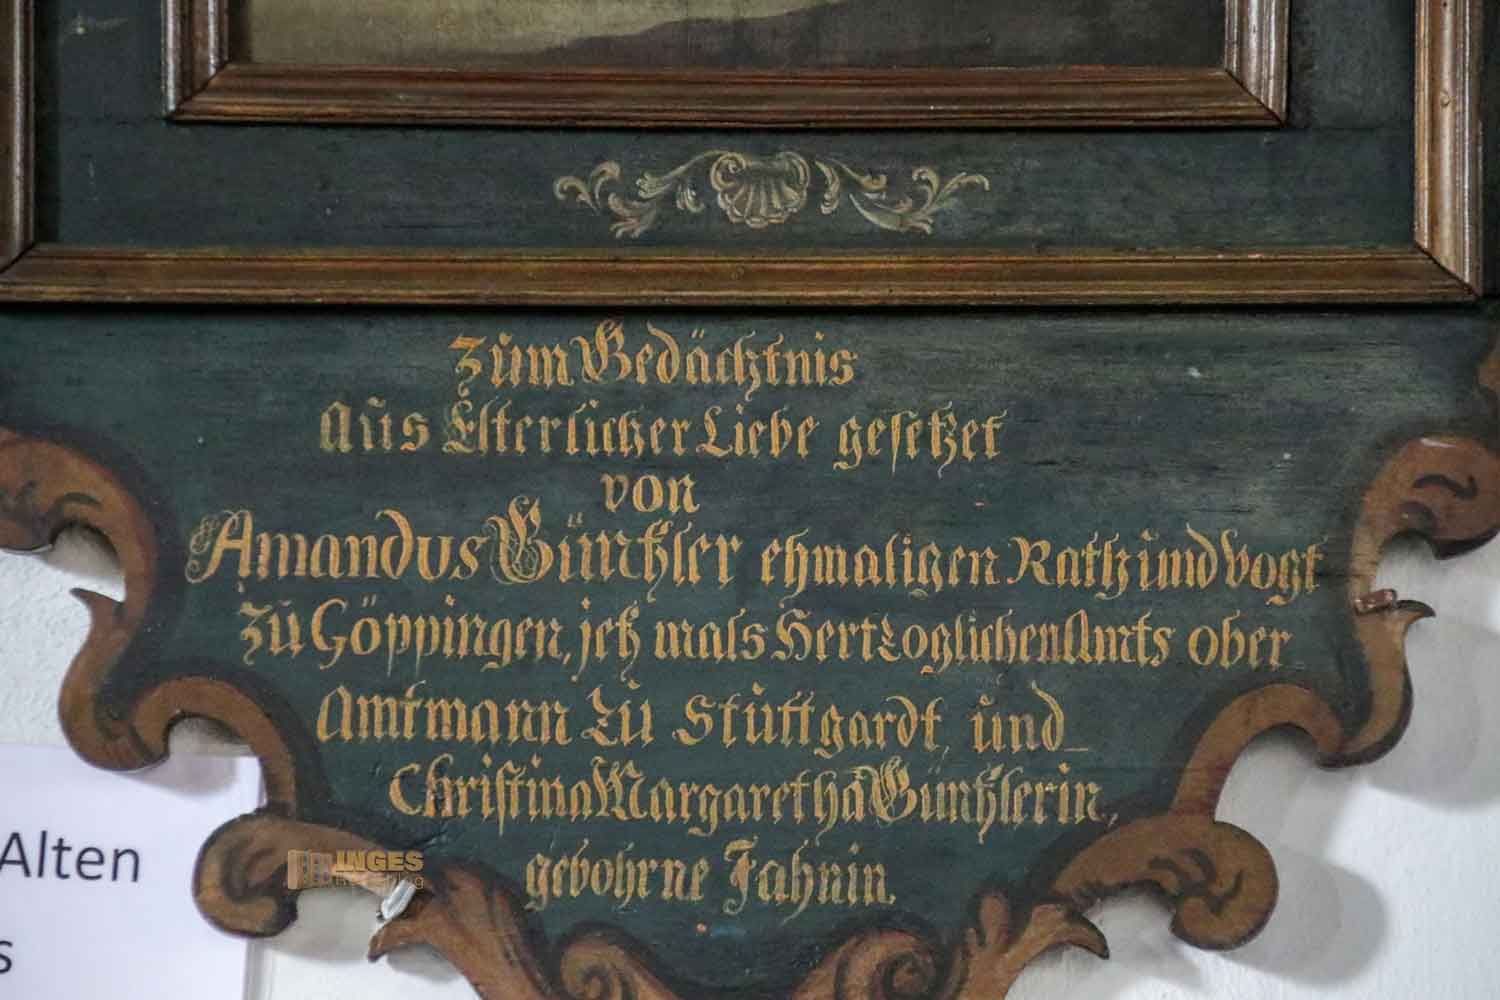 Zum Gedächtnis
Aus Elterlicher Liebe gesetzet
von
Amandus Güntzler ehmaligen Rath und Vogt
zu Göppingen, jetz mals Hertzoglichen Amts ober
Amtmann zu Stuttgardt, und
Christina Margaretha Güntzlerin,
gebohrne Jahnin.
INGES
Alten
s